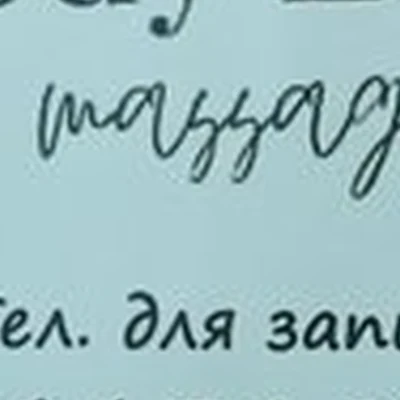 massag
тел. для запи